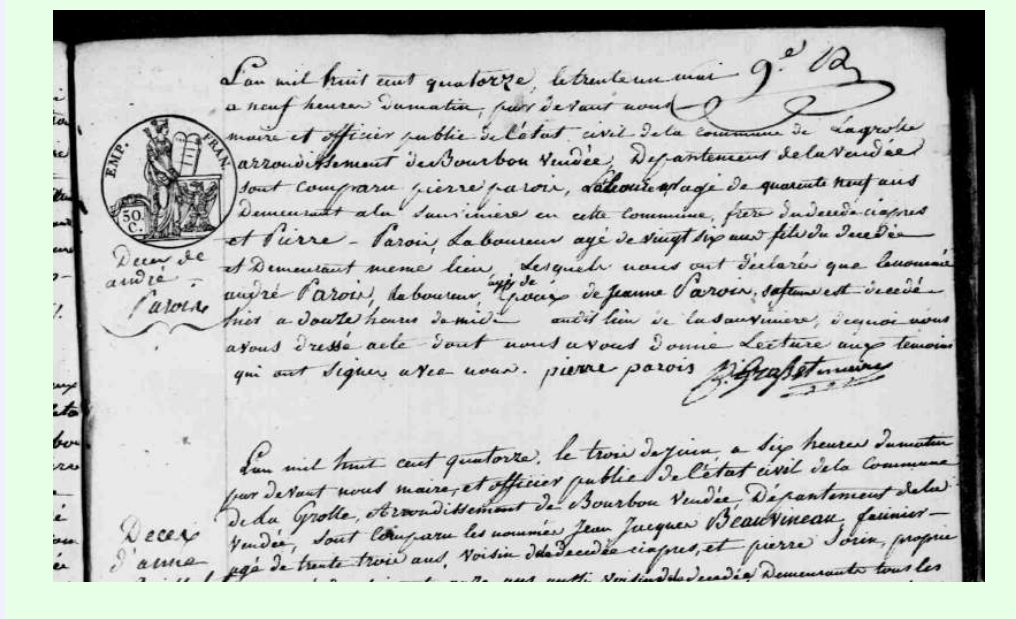 9.e R
L'an mil huit cent quatorze, le trente un mai
a neuf heures du matin, par devant nous
maire et officier public de l'état civil de la commune de Lagrolle
arrondissement de Bourbon Vendée, Département de la Vendée
sont comparu pierre parois, Laboureur agé de quarente neuf ans
Demeurant a la Sauvinière en cette commune, frère du decedé ciapres
et Pierre - Parois, Laboureur agé de vingt six ans fils du decedée
et Demeurant meme lieu, Lesquels nous ont déclarés que le nommé
andré Parois, Laboureur, époux de Jeanne Parois, sa femme est decedé
hier a douze heures de midi audit lieu de la sauvinière, dequoi nous
avons dressé acte dont nous avons donné Lecture aux temoins
qui ont signés avec nous. pierre parois maire
EMP. FRAN.
50.
C.
Deces de
andré
Parois
L'an mil huit cent quatorze, le trois de juin, a six heures du matin
par devant nous maire, et officier public de l'état civil de la Commune
de La Grolle, Arrondissement de Bourbon Vendée, Département de la
Vendée, sont comparu les nommés Jean Jacques Beauvineau, farinier
agé de trente trois ans, voisin de la decedée ciapres, et pierre Sorin, proprie
ans aussi voisin de la decedée Demeurants tous les
Deces
d'anne